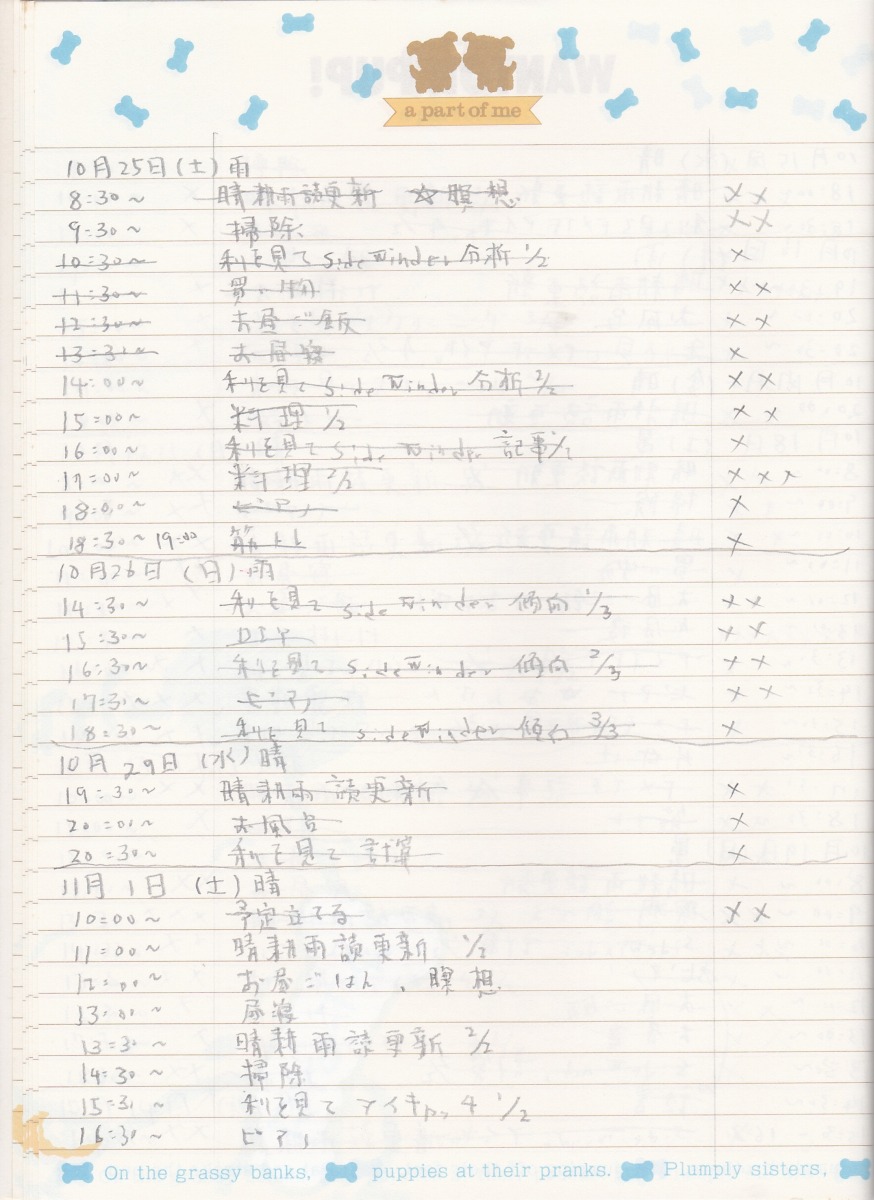 a part of me
10月25日(土)雨
8:30~ 晴耕雨読更新 ☆瞑想 ××
9:30~ 掃除 ××
10:30~ 利を見て Side Winder 分析 1/2 ×
11:30~ 買い物 ××
12:30~ お昼ご飯 ××
13:30~ お昼寝 ×
14:00~ 利を見て Side Winder 分析 2/2 ××
15:00~ 料理 1/2 ××
16:00~ 利を見て Side Winder 記事 1/1 ×
17:00~ 料理 2/2 ×××
18:00~ ピアノ ×
18:30~19:00 筋トレ ×
10月26日(日)雨
14:30~ 利を見て Side Winder 傾向 1/3 ××
15:30~ DIY ××
16:30~ 利を見て Side Winder 傾向 2/3 ××
17:30~ ピアノ ××
18:30~ 利を見て Side Winder 傾向 3/3 ×
10月29日(水)晴
19:30~ 晴耕雨読更新 ×
20:00~ お風呂 ×
20:30~ 利を見て 計算 ×
11月1日(土)晴
10:00~ 予定立てる ××
11:00~ 晴耕雨読更新 1/2
12:00~ お昼ごはん、瞑想
13:00~ 昼寝
13:30~ 晴耕雨読更新 2/2
14:30~ 掃除
15:30~ 利を見て 1/2
16:30~ ピアノ
On the grassy banks, puppies at their pranks. Plumply sisters,